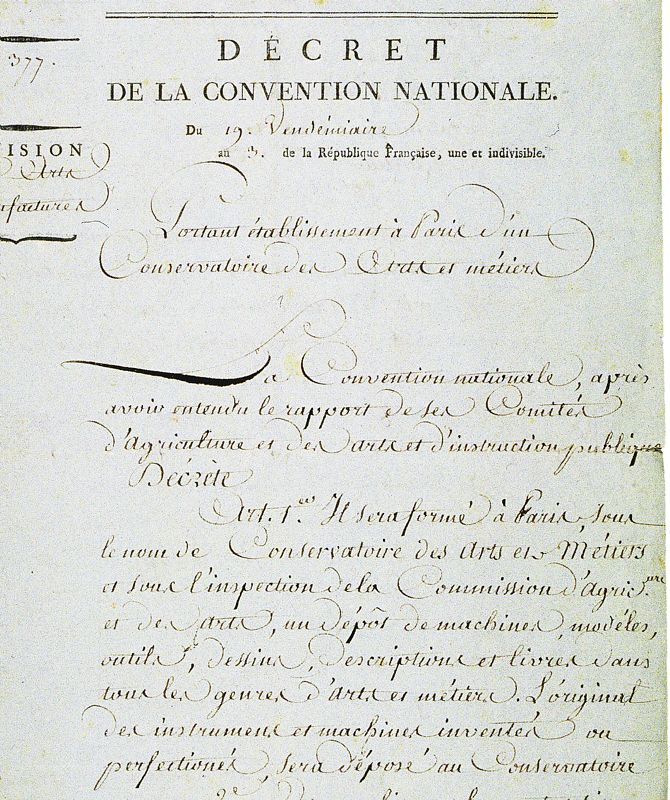 377.
ISION
Arts
ufactures
DÉCRET
DE LA CONVENTION NATIONALE.
Du 19. Vendémiaire
an 3. de la République Française, une et indivisible.
Portant établissement à Paris d'un
Conservatoire des Arts et métiers
La Convention nationale, après
avoir entendu le rapport de ses Comités
d'Agriculture et des arts et d'instruction publique
Décrète
Art. 1.er Il sera formé à Paris, sous
le nom de Conservatoire des Arts et Métiers
et sous l'inspection de la Commission d'Agric.ure
et des Arts, un dépôt de machines, modéles,
outils, dessins, descriptions et livres dans
tous les genres d'arts et métiers. L'original
des instrumens et machines inventés ou
perfectionés, sera déposé au Conservatoire
2e